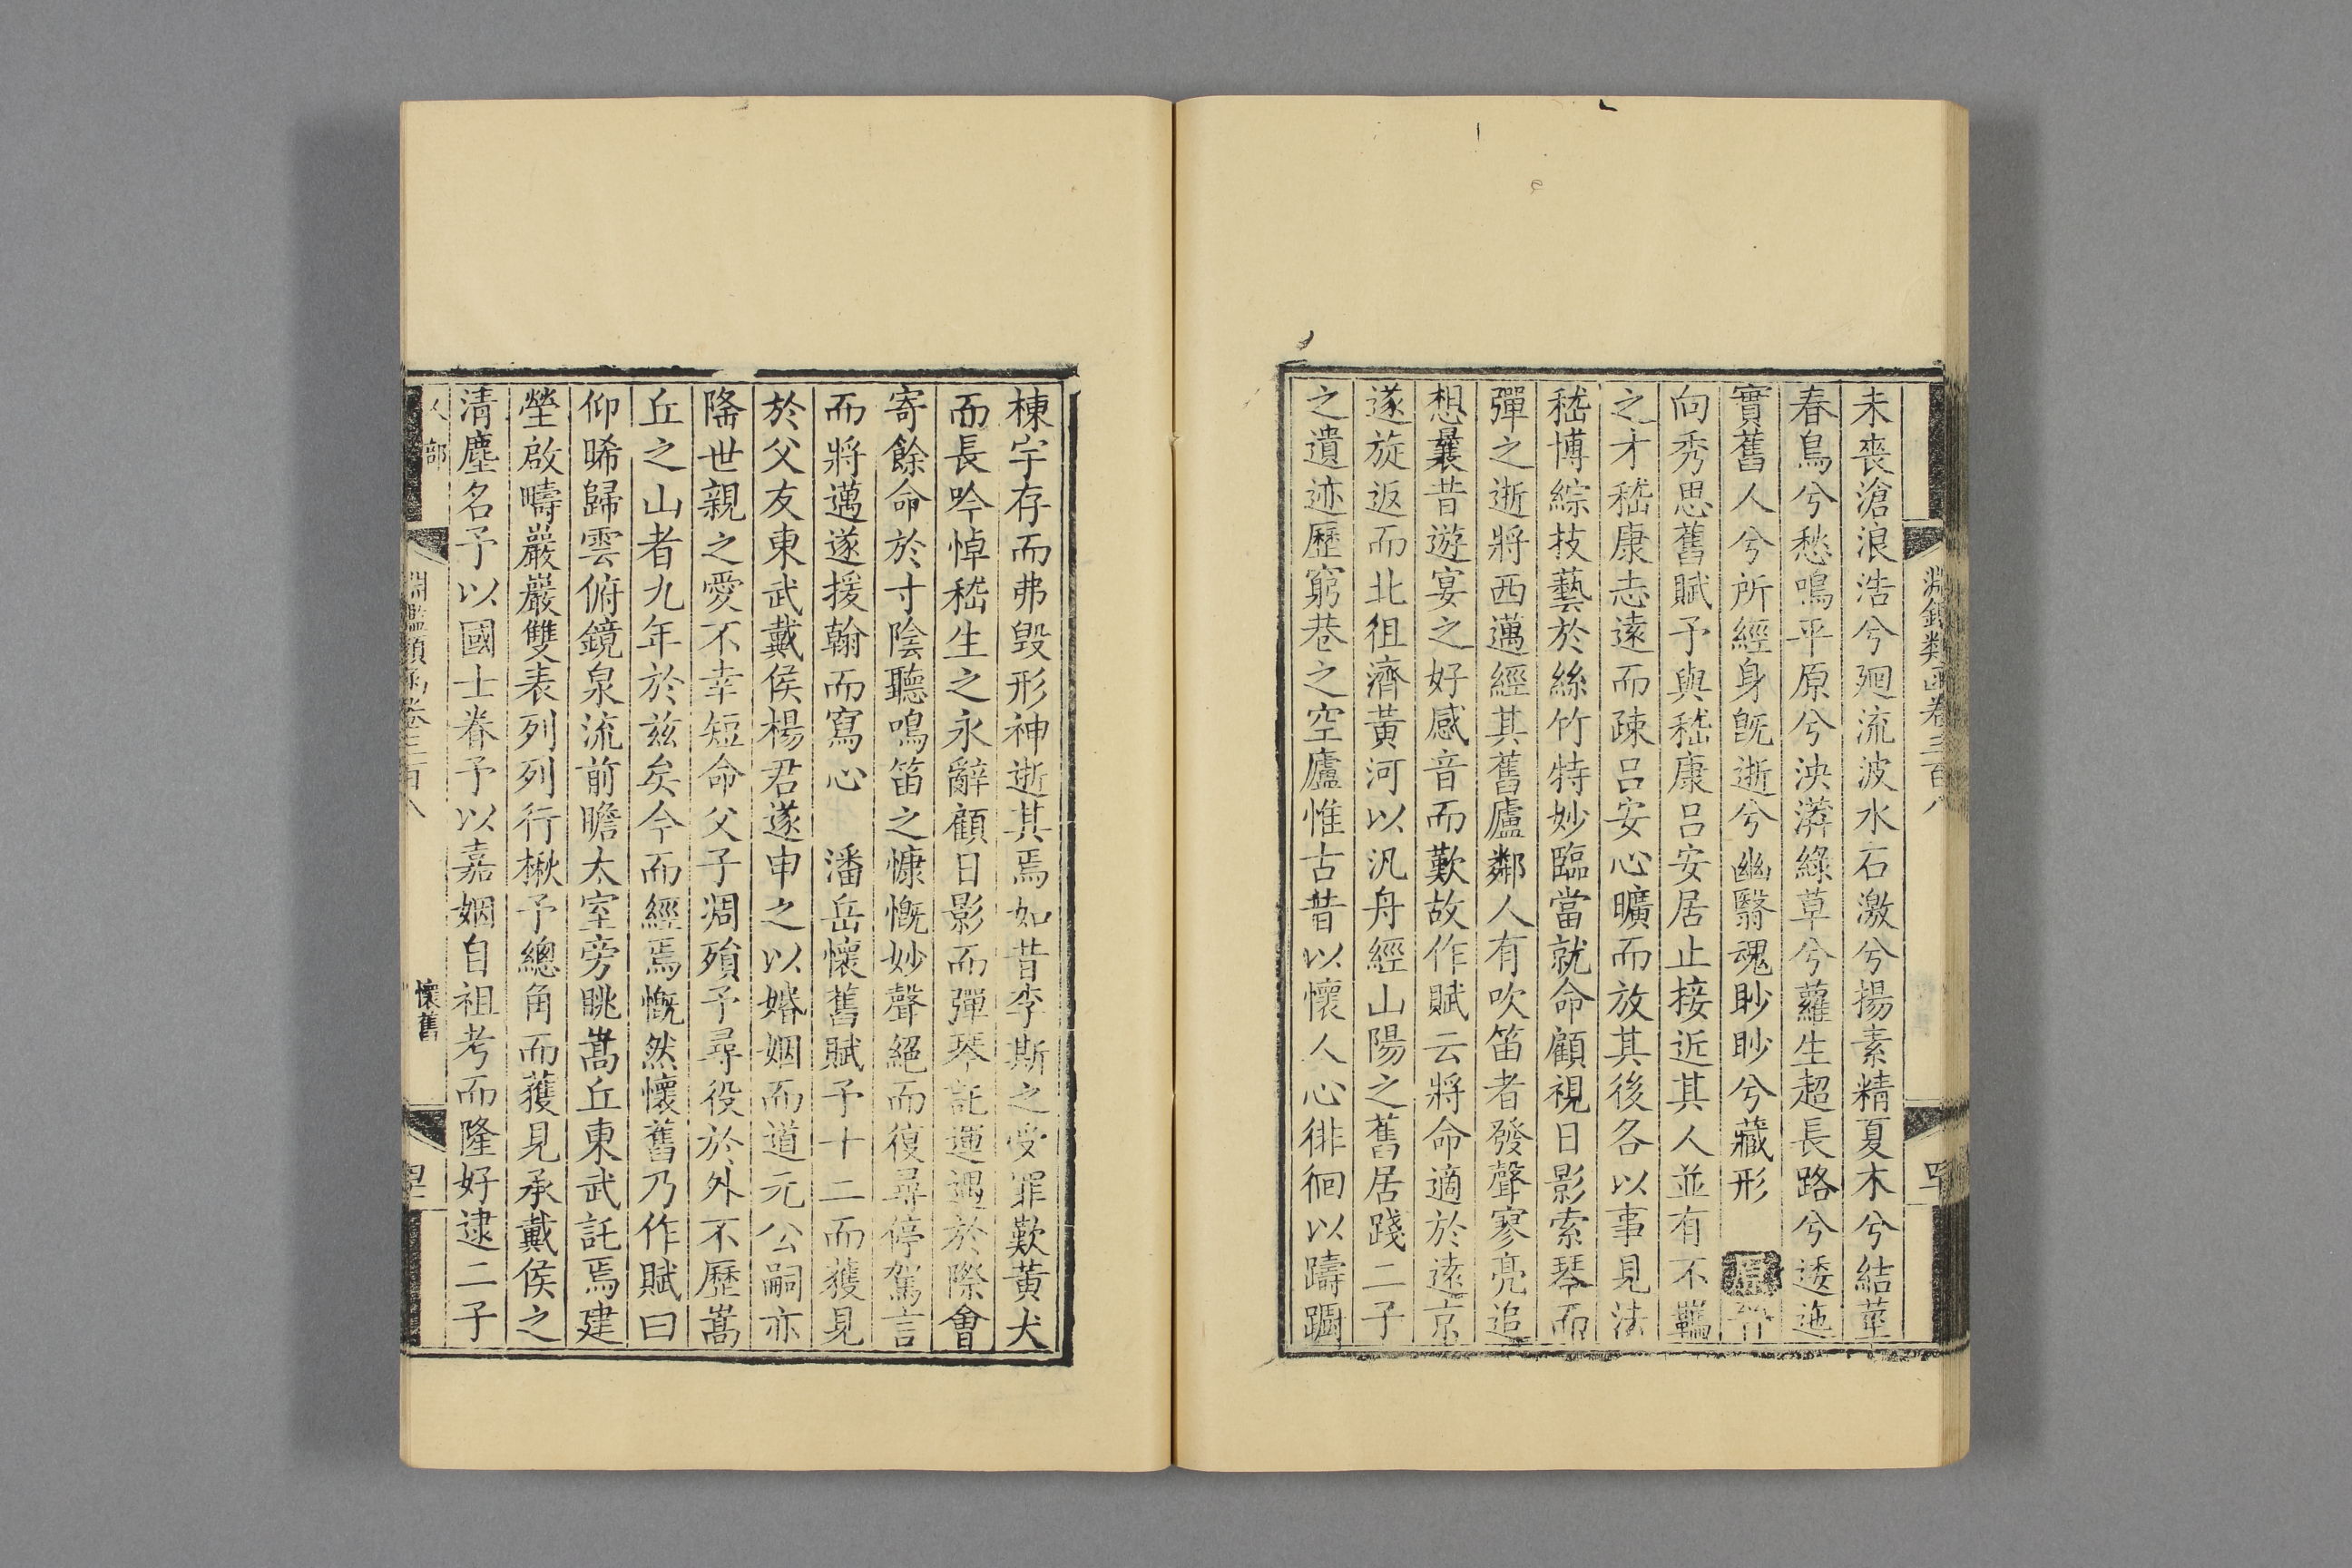 未喪滄浪浩兮廻流波水石激兮揚素精夏木兮結莖
春鳥兮愁鳴平原兮泱漭綠草兮蘿生超長路兮逶迤
實舊人兮所經身旣逝兮幽翳魂眇眇兮藏形 原晉
向秀思舊賦予與嵇康呂安居止接近其人並有不羈
之才嵇康志遠而疎呂安心曠而放其後各以事見法
嵇博綜技藝於絲竹特妙臨當就命顧視日影索琴而
彈之逝將西邁經其舊廬鄰人有吹笛者發聲寥亮追
想曩昔遊宴之好感音而歎故作賦云將命適於遠京
遂旋返而北徂濟黃河以汎舟經山陽之舊居踐二子
之遺迹歷窮巷之空廬惟古昔以懷人心徘徊以躊躕
棟宇存而弗毁形神逝其焉如昔李斯之受罪歎黃犬
而長吟悼嵇生之永辭顧日影而彈琴託運遇於際會
寄餘命於寸陰聽鳴笛之慷慨妙聲絕而復尋停駕言
而將邁遂援翰而寫心 潘岳懷舊賦予十二而獲見
於父友東武戴侯楊君遂申之以婚姻而道元公嗣亦
隆世親之愛不幸短命父子凋殞予尋役於外不歷嵩
丘之山者九年於兹矣今而經焉慨然懷舊乃作賦曰
仰晞歸雲俯鏡泉流前瞻太室旁眺嵩丘東武託焉建
塋啟疇巖巖雙表列列行楸予總角而獲見承戴侯之
清塵名予以國士眷予以嘉姻自祖考而隆好逮二子
人部
淵鑑類函卷三百八
懷舊